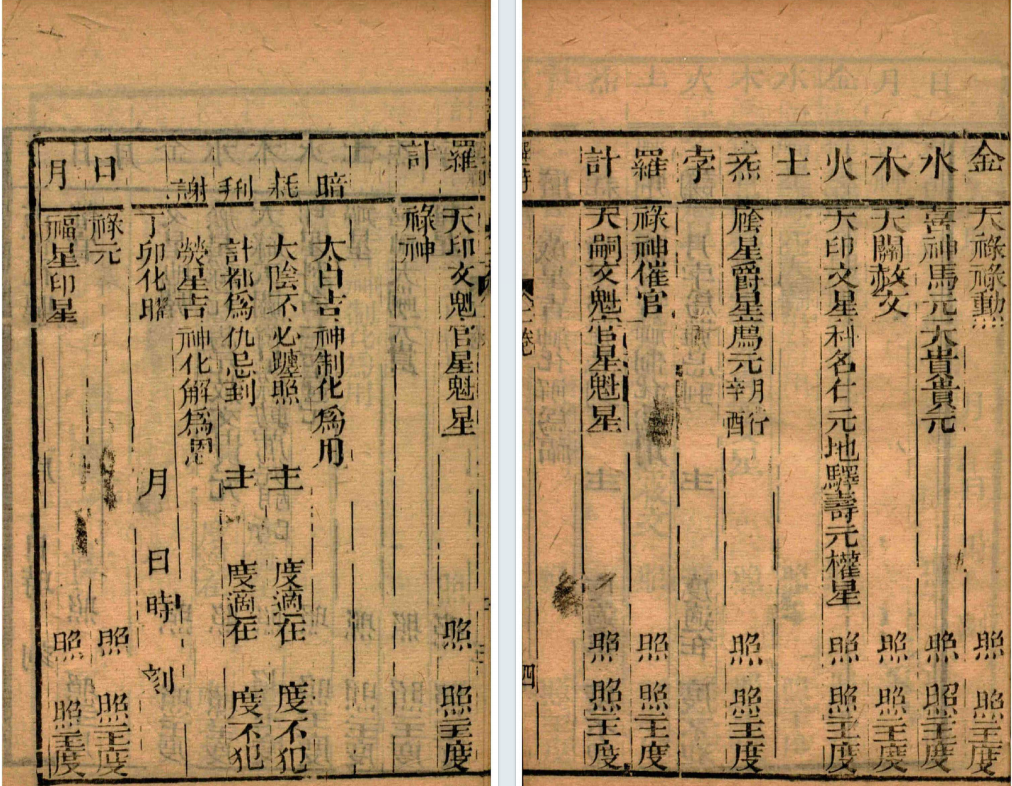 金 天祿祿動 照 照主度
水 喜神馬元大貴貴元 照 照主度
木 天關赦文 照 照主度
火 天印文星科名仁元地驛壽元權星 照 照主度
土
炁 廕星爵星馬元月行辛酉 照 照主度
孛
羅 祿神催官 照 照主度
計 天嗣文魁官星魁星 照 照主度
四
羅 天印文魁官星魁星 照 照主度
計 祿神
暗 太白吉神制化為用
耗 太陰不必躔照 主 度適在 度不犯
刑 計都為仇忌到 主 度適在 度不犯
謝 熒星吉神化解為恩
丁卯化曜 月 日 時 刻
日 祿元 照 照主度
月 福星印星 照 照主度